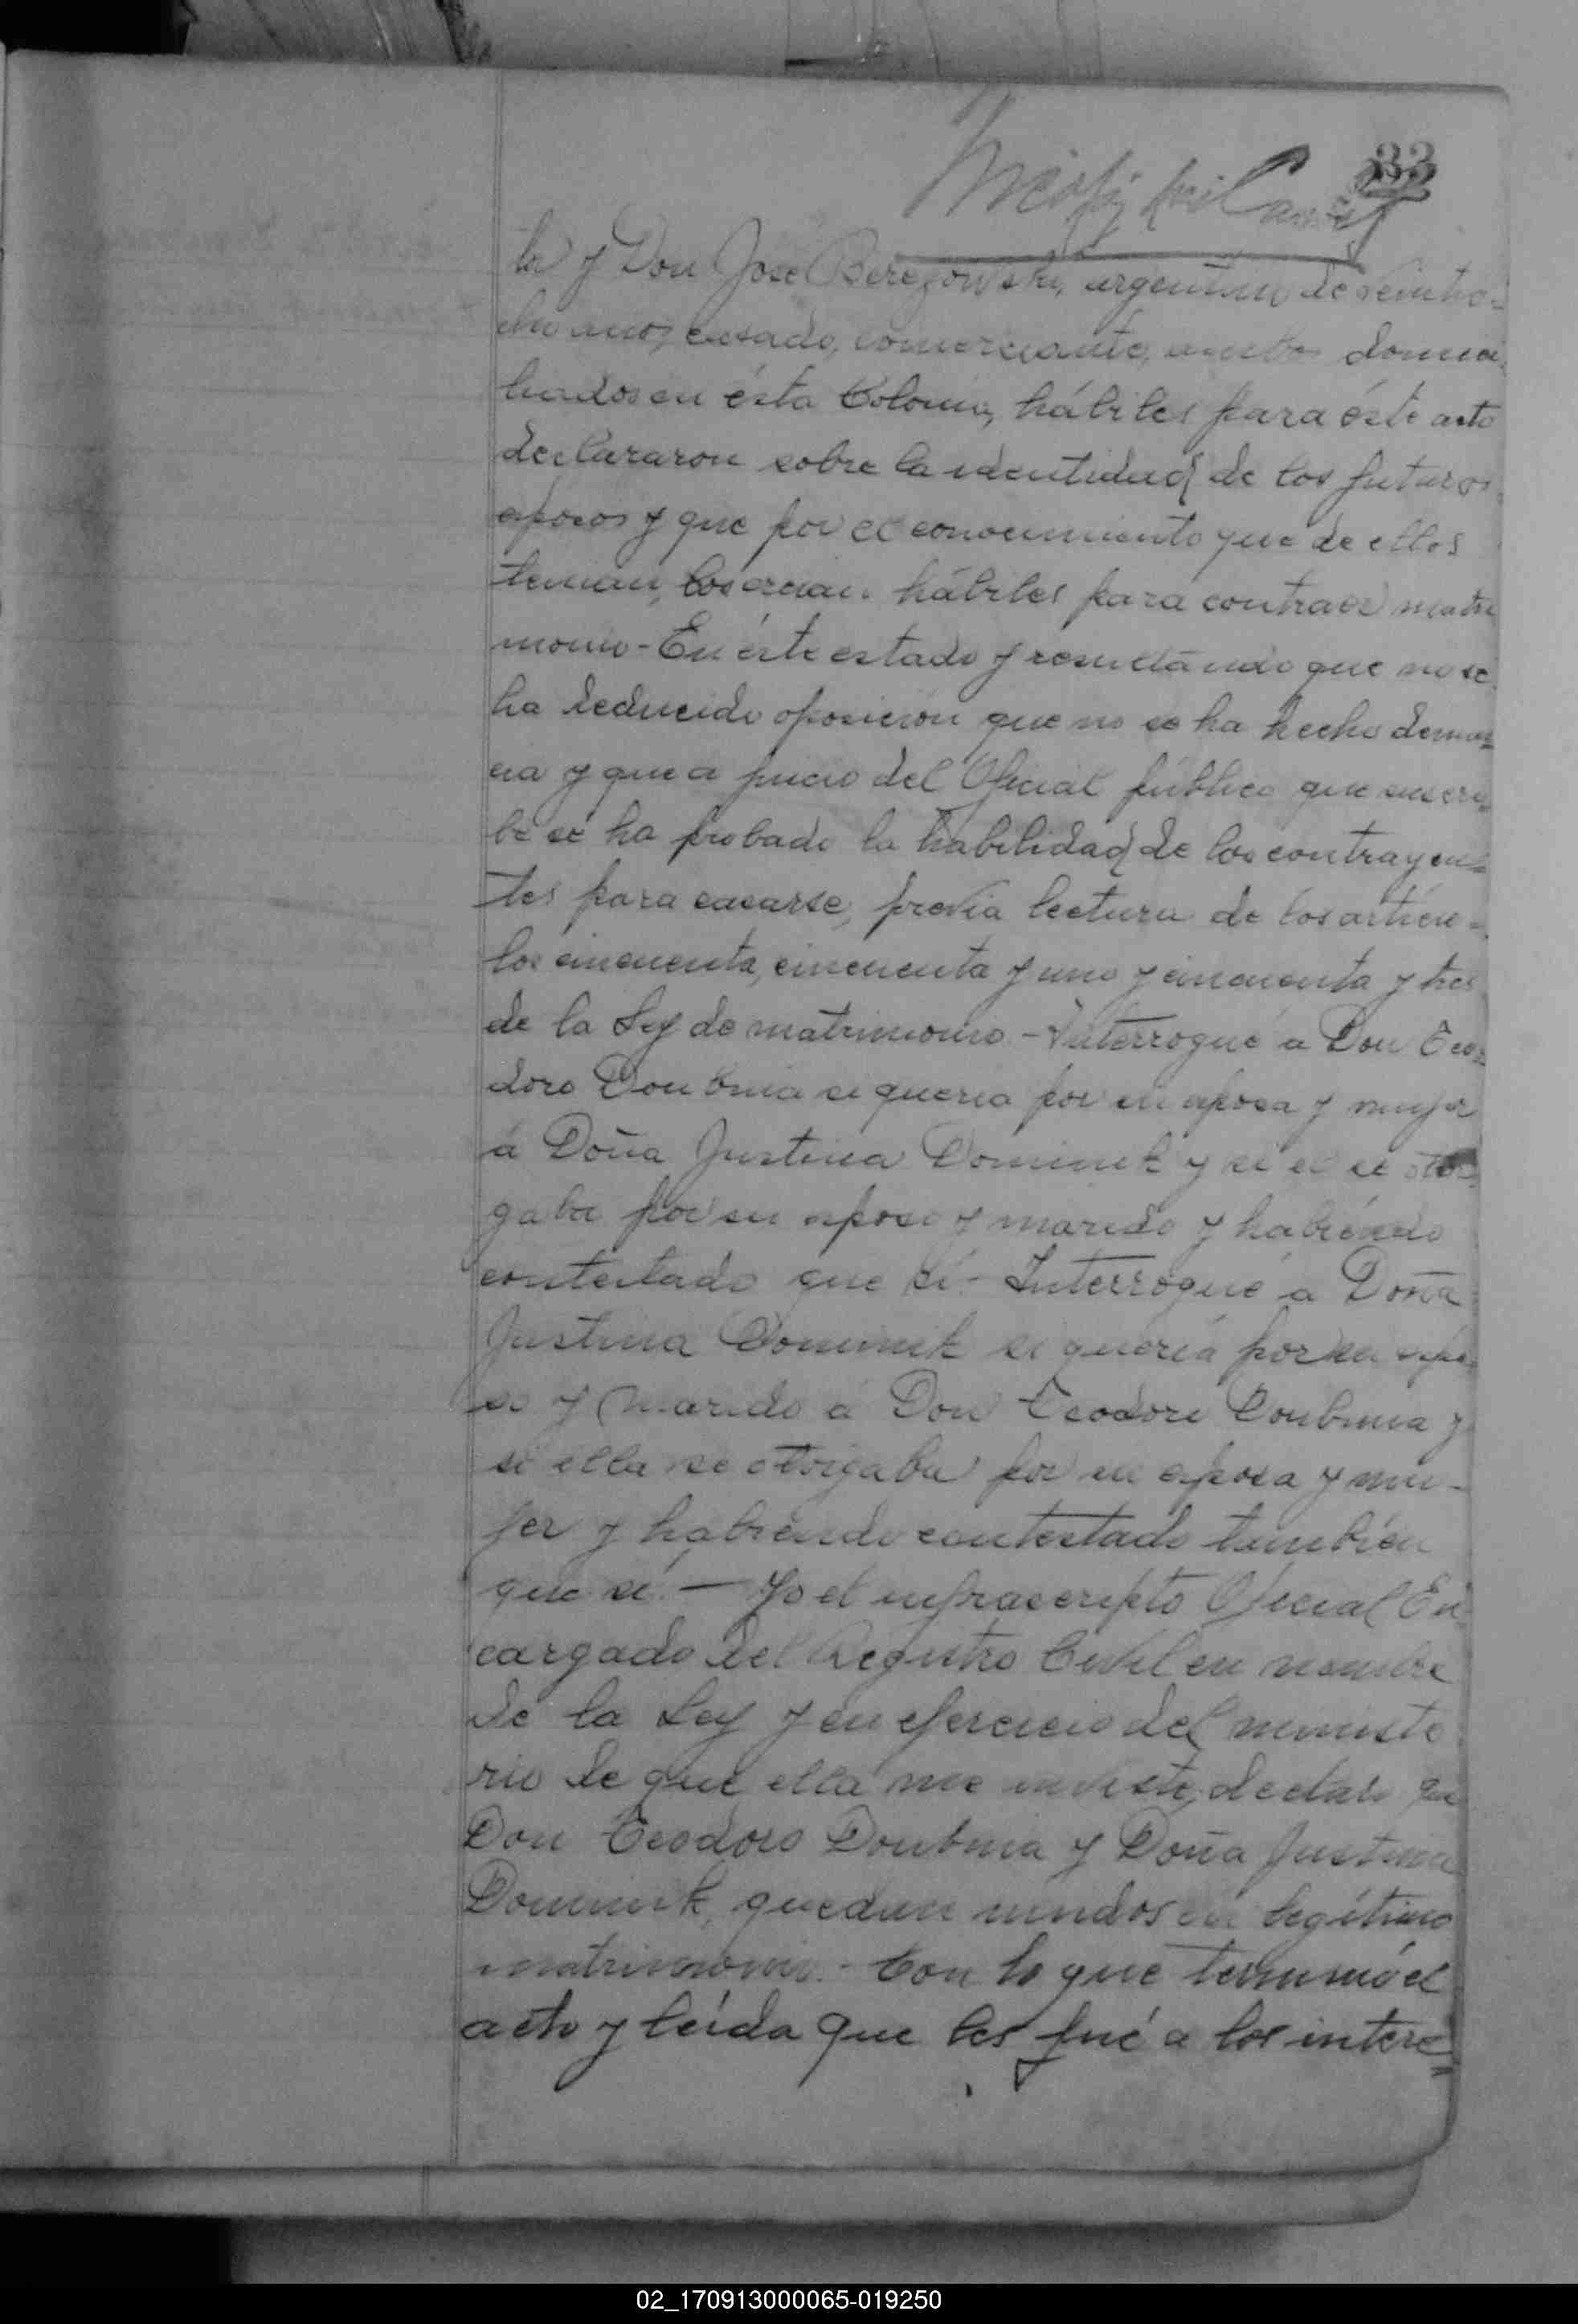 33
ta y Don José Berezowski, argentino de veintio-
cho años, casado, comerciante, ambos domici-
liados en ésta Colonia, hábiles para éste acto
declararon sobre la identidad de los futuros
esposos y que por el conocimiento que de ellos
tenian, los creian hábiles para contraer matri
monio - En éste estado y resultando que no se
ha deducido oposición que no se ha hecho denun-
cia y que a juicio del Oficial público que suscri-
be se ha probado la habilidad de los contrayen-
tes para casarse, previa lectura de los artícu-
los cincuenta, cincuenta y uno y cincuenta y tres
de la Ley de matrimonio. - Interrogué a Don Teo-
doro Doubnia si queria por su esposa y mujer
á Doña Justina Dominik y si el se otor-
gaba por su esposo y marido y habiendo
contestado que sí - Interrogué a Doña
Justina Dominik si quería por su espo-
so y marido á Don Teodoro Doubnia y
si ella se otorgaba por su esposa y mu-
jer y habiendo contestado también
que sí. - Yo el infrascripto Oficial En
cargado del Registro Civil en nombre
de la Ley y en ejercicio del ministe
rio de que ella me inviste, declaro que
Don Teodoro Doubnia y Doña Justina
Dominik, quedan unidos en legítimo
matrimonio. - Con lo que terminó el
acto y leída que les fué a los intere-
02_170913000065-019250